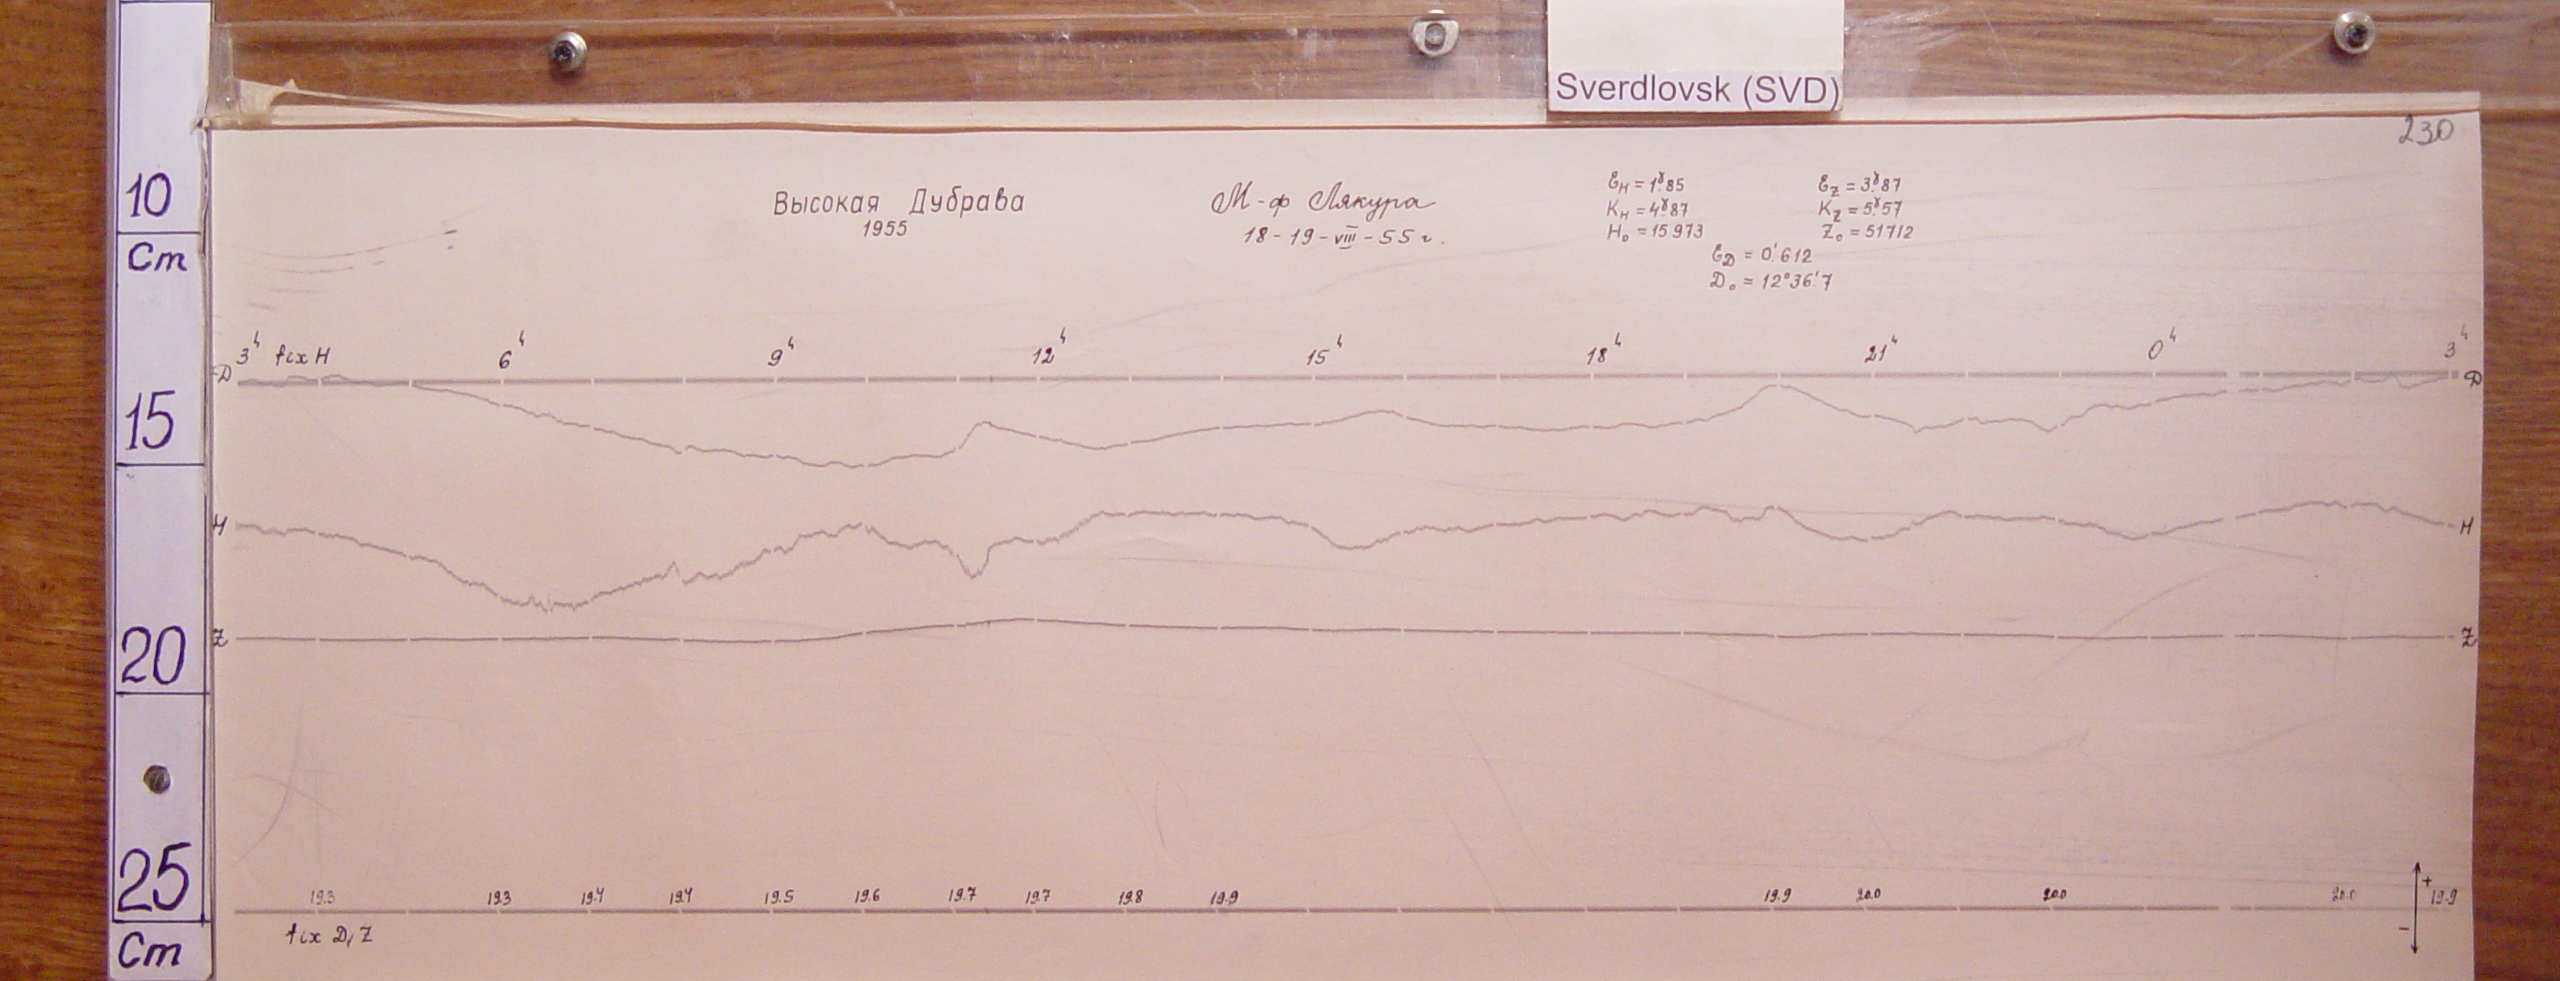 Sverdlovsk (SVD)
230
10
Cm
15
20
25
Cm
Высокая Дубрава
1955
М-ф Лякура
18-19-VIII-55 г.
εH = 1γ85
KH = 4γ87
H₀ = 15973
εZ = 3γ87
KZ = 5γ57
Z₀ = 51712
εD = 0'612
D₀ = 12°36'7
3ч fix H 6ч 9ч 12ч 15ч 18ч 21ч 0ч 3ч
D D
H H
Z Z
19.3 19.3 19.4 19.4 19.5 19.6 19.7 19.7 19.8 19.9 19.9 20.0 20.0 20.0 19.9
+
−
fix D, Z